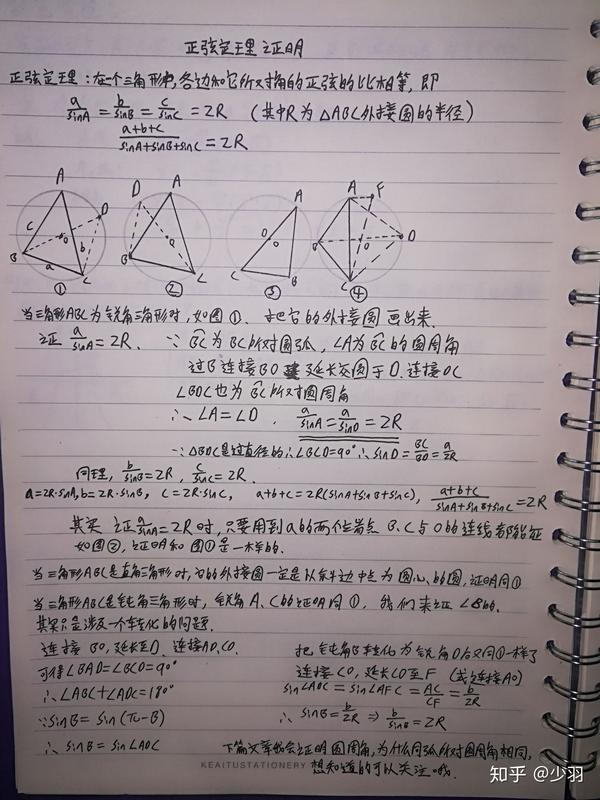 正弦定理之证明
正弦定理:在一个三角形中,各边和它所对角的正弦的比相等,即
a/sinA = b/sinB = c/sinC = 2R (其中R为△ABC外接圆的半径)
(a+b+c)/(sinA+sinB+sinC) = 2R
A A A A F
D D D
c b o o o o
B a C B C C B B C
① ② ③ ④
当三角形ABC为锐角三角形时,如图①.把它的外接圆画出来.
之证 a/sinA = 2R. ∵ BC为BC所对圆弧,∠A为BC的圆周角
过B连接BO 延长交圆于D.连接DC
∠BDC也为BC所对圆周角
∴∠A=∠D. a/sinA = a/sinD = 2R
∵△BDC是过直径的∴∠BCD=90°∴sinD = BC/BD = a/2R
同理, b/sinB = 2R, c/sinC = 2R.
a=2R·sinA, b=2R·sinB, c=2R·sinC, a+b+c=2R(sinA+sinB+sinC), (a+b+c)/(sinA+sinB+sinC) = 2R
其实之证 a/sinA = 2R时,只要用到a的两个端点B.C与O的连线都能证
如图②,证明和图①是一样的.
当三角形ABC是直角三角形时,它的外接圆一定是以斜边中点为圆心的圆,证明同①
当三角形ABC是钝角三角形时,锐角A、C的证明同①,我们来证∠B的.
其实只是涉及一个转化的问题.
连接BO,延长至D.连接AD,CD. 把钝角B转化为锐角D后又同①一样了
可得∠BAD=∠BCD=90° 连接CO,延长CO至F (或连接AO)
∴∠ABC+∠ADC=180° sin∠ADC = sin∠AFC = AC/CF = b/2R
∵sinB = sin(π-B) ∴ sinB = b/2R ⇒ b/sinB = 2R
∴ sinB = sin∠ADC 下篇文章我会证明圆周角,为什么同弧所对圆周角相同,
KEAITUSTATIONERY 想知道的可以关注哦.
知乎 @少羽